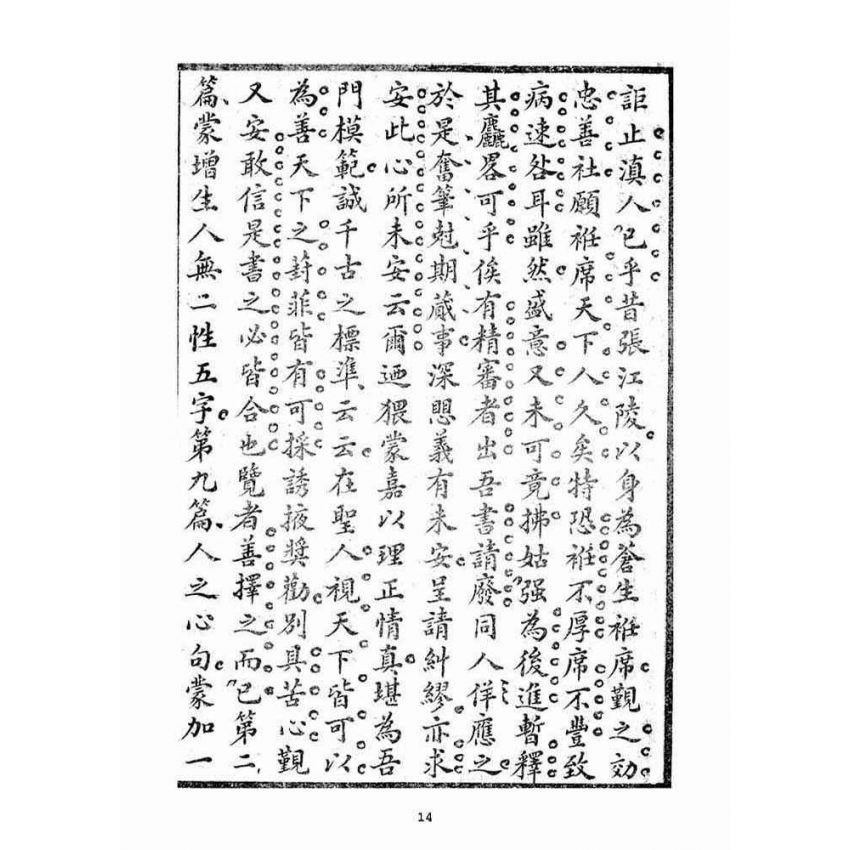 詎止滇人已乎昔張江陵以身為蒼生袵席覲之効
忠善社願袵席天下人久矣特恐袵不厚席不豐致
病速咎耳雖然盛意又未可竟拂姑强為後進暫釋
其麤畧可乎俟有精審者出吾書請廢同人佯應之
於是奮筆尅期蕆事深思義有未安呈請糾繆亦求
安此心所未安云爾迺猥蒙嘉以理正情真堪為吾
門模範誠千古之標準云云在聖人視天下皆可以
為善天下之葑菲皆有可採誘掖獎勸別具苦心覲
又安敢信是書之必皆合也覽者善擇之而已第二
篇蒙增生人無二性五字第九篇人之心句蒙加一
14